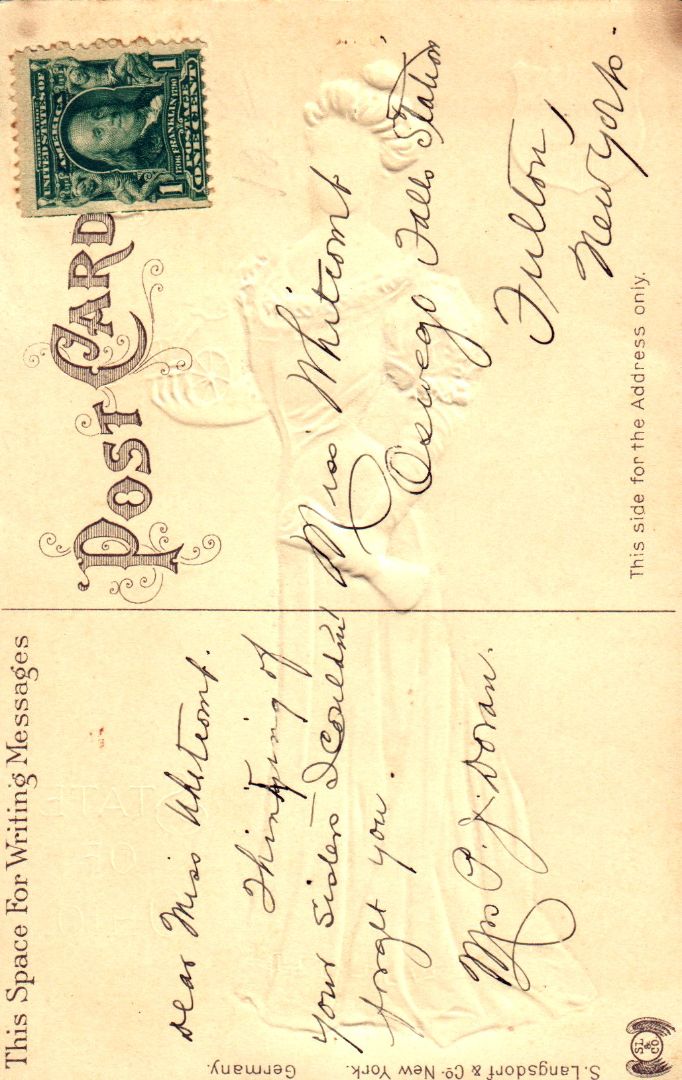 This Space For Writing Messages
Dear Miss Whitcomb.
Thinking of
your Sisters I couldn't
forget you.
Mrs P. J. Doran.
POST CARD
SERIES 1902
UNITED STATES OF
AMERICA
1706 FRANKLIN 1790
POSTAGE
1 1
ONE CENT
Miss Whitcomb
Oswego Falls Station
Fulton,
New York.
This side for the Address only.
S. Langsdorf & Co. New York.
Germany.
S.L.
&
CO
STATE
OF